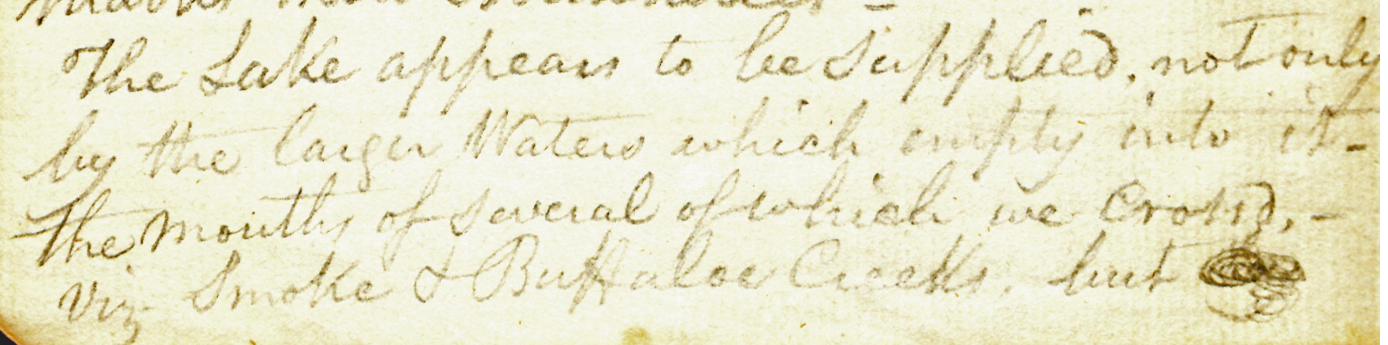 The Lake appears to be Supplied, not only
by the larger Waters which empty into it-
The Mouths of several of which we Cross'd, -
viz Smoke & Buffaloe Creeks, but